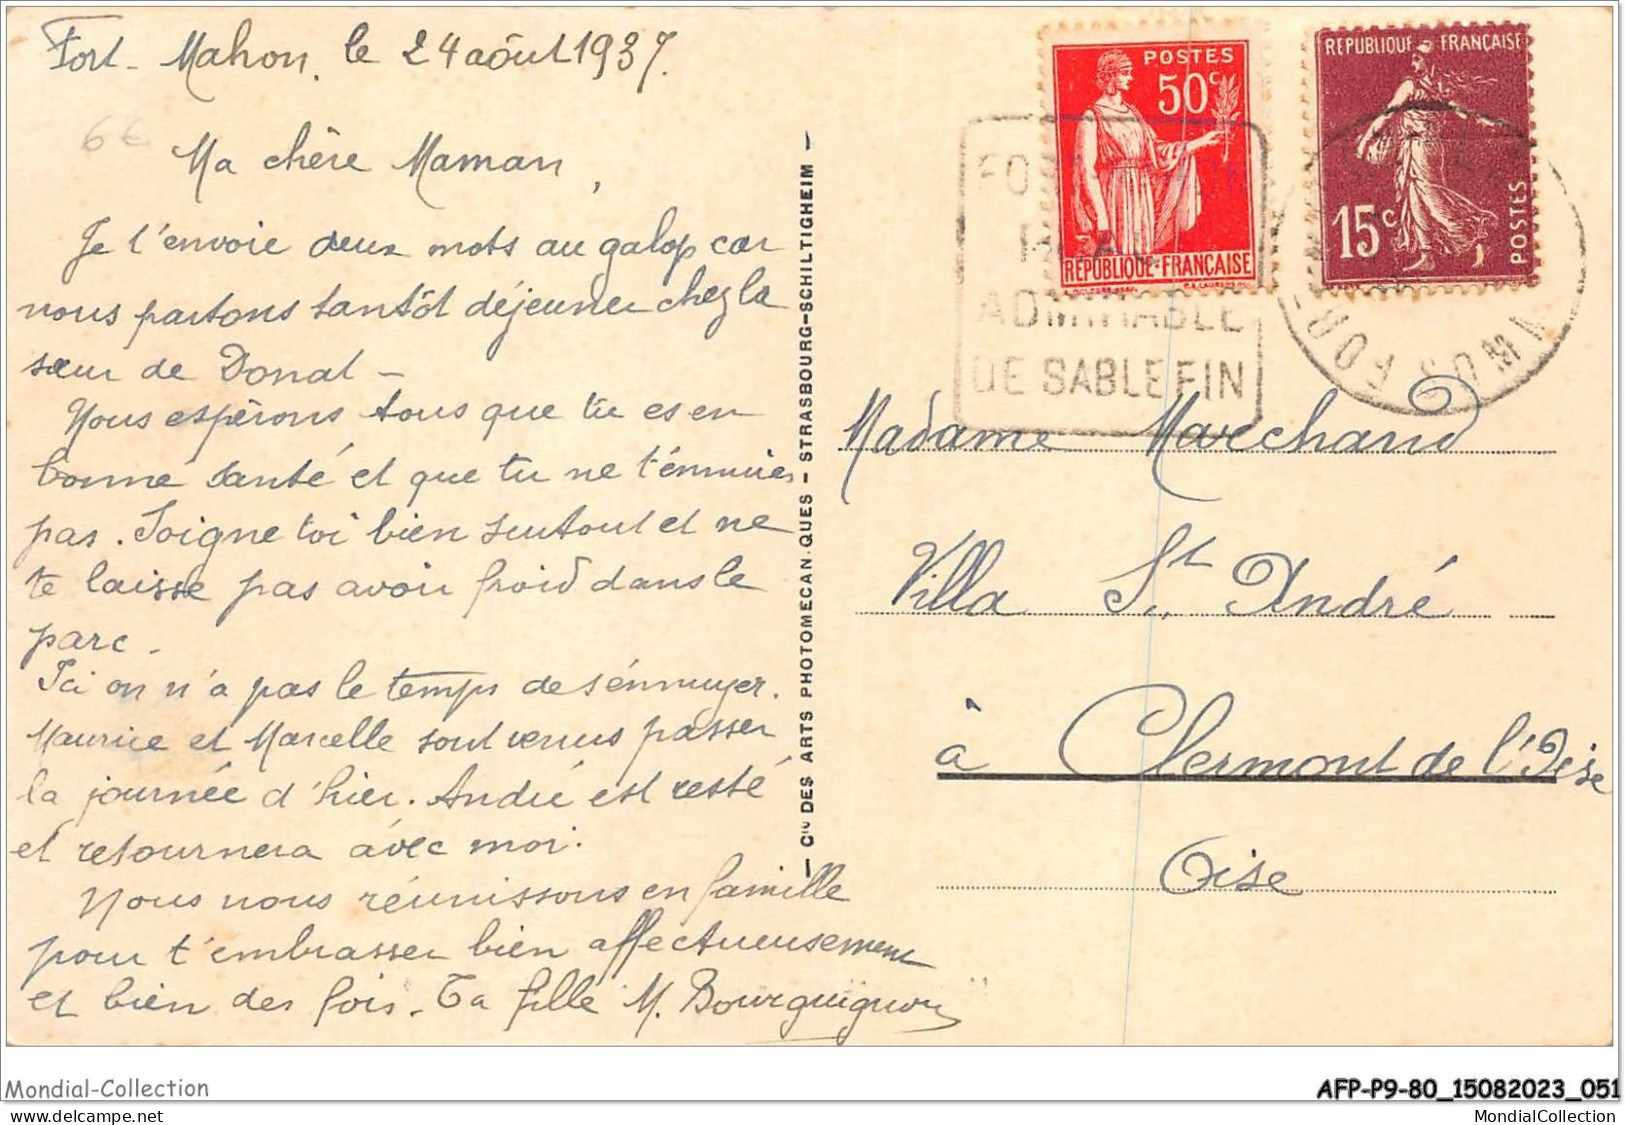 Fort-Mahon, le 24 août 1937.
6€
Ma chère Maman,
Je t'envoie deux mots au galop car
nous partons tantôt déjeuner chez la
sœur de Donat -
Nous espérons tous que tu es en
bonne santé et que tu ne t'énnuies
pas. Soigne toi bien surtout et ne
te laisse pas avoir froid dans le
parc -
Ici on n'a pas le temps de s'énnuyer.
Maurice et Marcelle sont venus passer
la journée d'hier. André est resté
et retournera avec moi.
Nous nous réunissons en famille
pour t'embrasser bien affectueusement
et bien des fois. Ta fille M. Bourguignon
— Cie DES ARTS PHOTOMECANIQUES - STRASBOURG-SCHILTIGHEIM —
POSTES
50c
RÉPUBLIQUE-FRANÇAISE
REPUBLIQUE FRANÇAISE
15c
POSTES
ADMIRABLE
DE SABLE FIN
Madame Marchand
Villa St. André
à Clermont de l'Oise
Oise
Mondial-Collection
AFP-P9-80_15082023_051
www.delcampe.net
MondialCollection